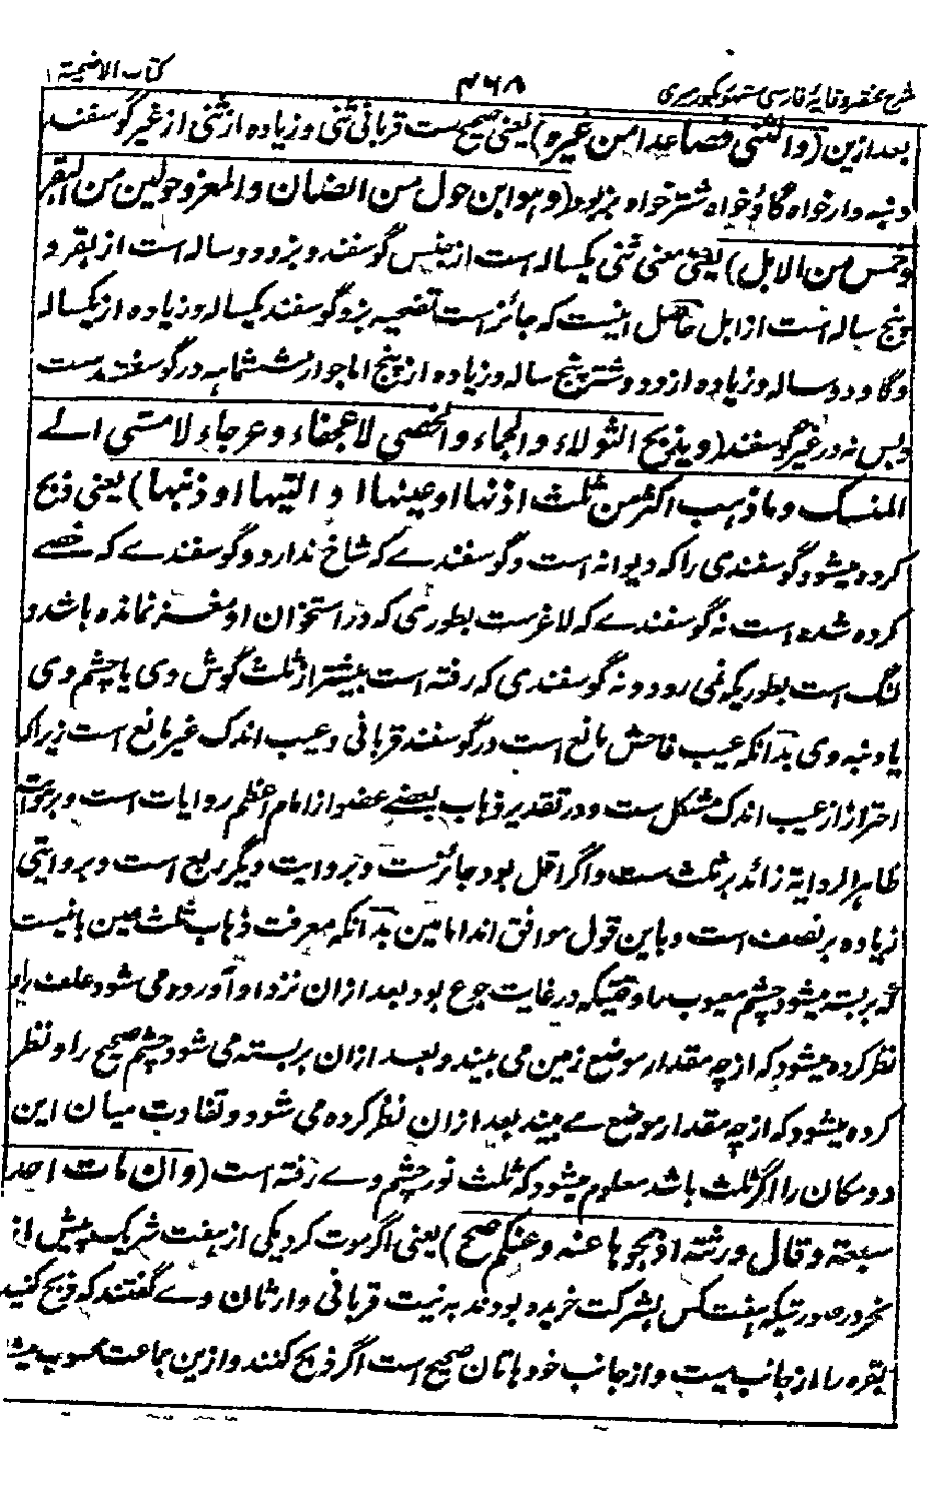 شرح مختصر وقایهٔ فارسی ۴۶۸ کتاب الاضحیة
بعد ازین (والثنی فصاعدا من غیره) یعنی صحیح ست قربانی ثنی و زیاده از ثنی از غیر گوسفند
دنبه دار خواه گاؤ خواه شتر خواه بز بود (وہو ابن حول من الضان والمعز وحولین من البقر
وخمس من الابل) یعنی معنی ثنی یکساله است از جنس گوسفند و بز و دو ساله است از بقر و
پنج ساله است از ابل حاصل اینست که جائز است تضحیه بز و گوسفند یکساله و زیاده از یکساله
و گاو دو ساله و زیاده از دو و شتر پنج ساله و زیاده از پنج اما جواز ششماہه در گوسفند ست
وبس نه در غیر گوسفند (ویذبح الثولاء والجماء والخصی لا عجفاء وعرجاء لا تمشی الے
المنسک وما ذہب اکثر من ثلث اذنہا او عینہا او الیتہا او ذنبہا) یعنی ذبح
کرده میشود گوسفندی را که دیوانه است و گوسفندے که شاخ ندارد و گوسفندے که خصے
کرده شده است نه گوسفندے که لاغرست بطوری که در استخوان او مغز نمانده باشد و
لنگ است بطوریکه نمی رود و نه گوسفندی که رفته است بیشتر از ثلث گوش وی یا چشم وی
یا دنبه وی بدانکه عیب فاحش مانع است در گوسفند قربانی و عیب اندک غیر مانع است زیراکه
احتراز از عیب اندک مشکل ست و در تقدیر ذہاب بعضے عضو از امام اعظم روایات است و بر روایت
ظاہر الروایة زائد بر ثلث ست و اگر اقل بود جائزست و بروایت دیگر ربع است و بروایتی
زیاده بر نصف است و باین قول موافق اند امامین بدآنکه معرفت ذہاب ثلث عین باینست
که بر بسته میشود چشم معیوب را وقتیکه در غایت جوع بود بعد ازان نزد او آورده می شود علف را و
نظر کرده میشود که از چه مقدار موضع زمین می بیند و بعد ازان بر بسته می شود چشم صحیح را و نظر
کرده میشود که از چه مقدار موضع مے بیند بعد ازان نظر کرده می شود و تفاوت میان این
دو مکان را اگر ثلث باشد معلوم میشود که ثلث نور چشم وے رفته است (وان مات احد
سبعة وقال ورثته اذبحوہا عنه وعنکم صح) یعنی اگر موت کرد یکی از ہفت شریک پیش از
نحر در صورتیکه ہفت کس بشرکت خریده بودند به نیت قربانی وارثان وے گفتند که ذبح کنید
بقره را از جانب میت و از جانب خودہاتان صحیح است اگر ذبح کنند و ازین جماعت محسوب میشود